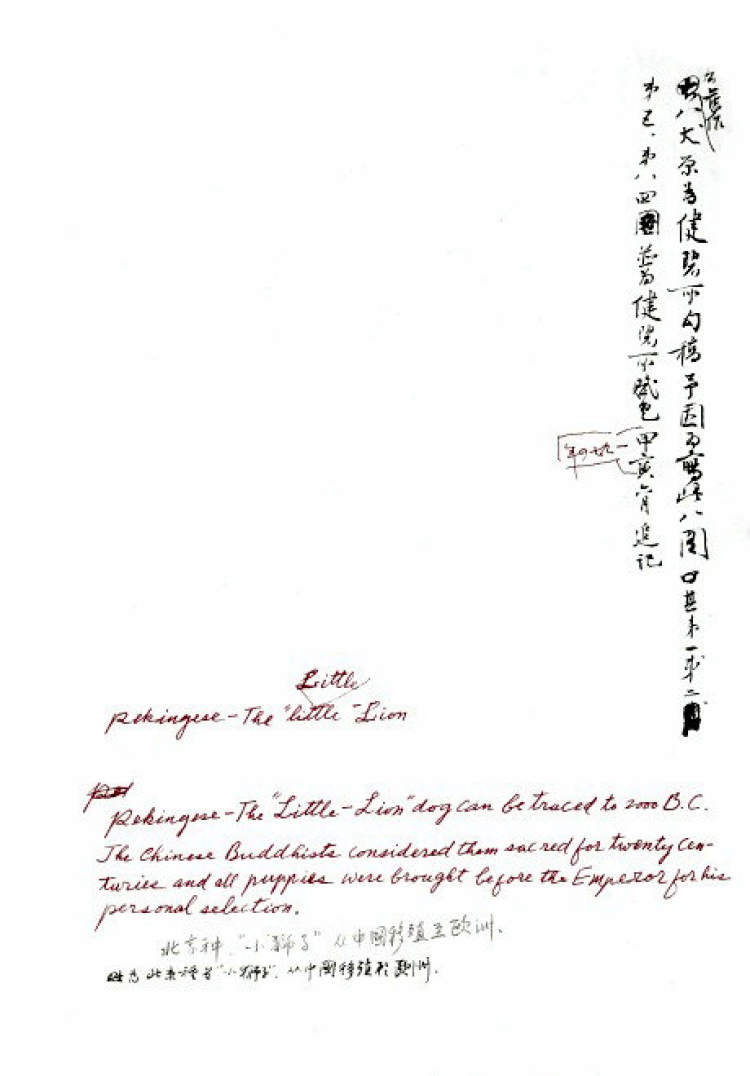 八犬原為健碧所勾稿予因而寫此八圖 其第一第二
第三、第八四圖並為健碧所賦色甲寅六月追记
Little
Pekingese-The "little" Lion
Pekingese-The "Little-Lion" dog can be traced to 2000 B.C.
The Chinese Buddhists considered them sacred for twenty cen-
turies and all puppies were brought before the Emperor for his
personal selection.
北京种，"小獅子" 从中國移殖至欧洲.
此為北京種者"小獅子"，从中國移殖於歐洲.